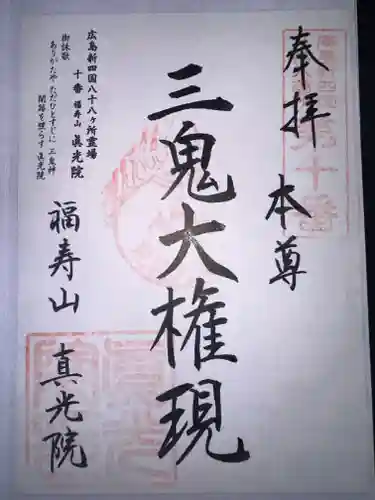 奉拝
本尊
三鬼大権現
広島新四国八十八ヶ所霊場
十番 福寿山 眞光院
御詠歌
ありがたや ただひとすじに 三鬼神
闇路を照らす 眞光院
福寿山 真光院